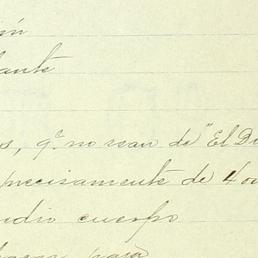 lante
s, q.e no sean de "El Di
precisamente de 4 o
udio cuerpo
para